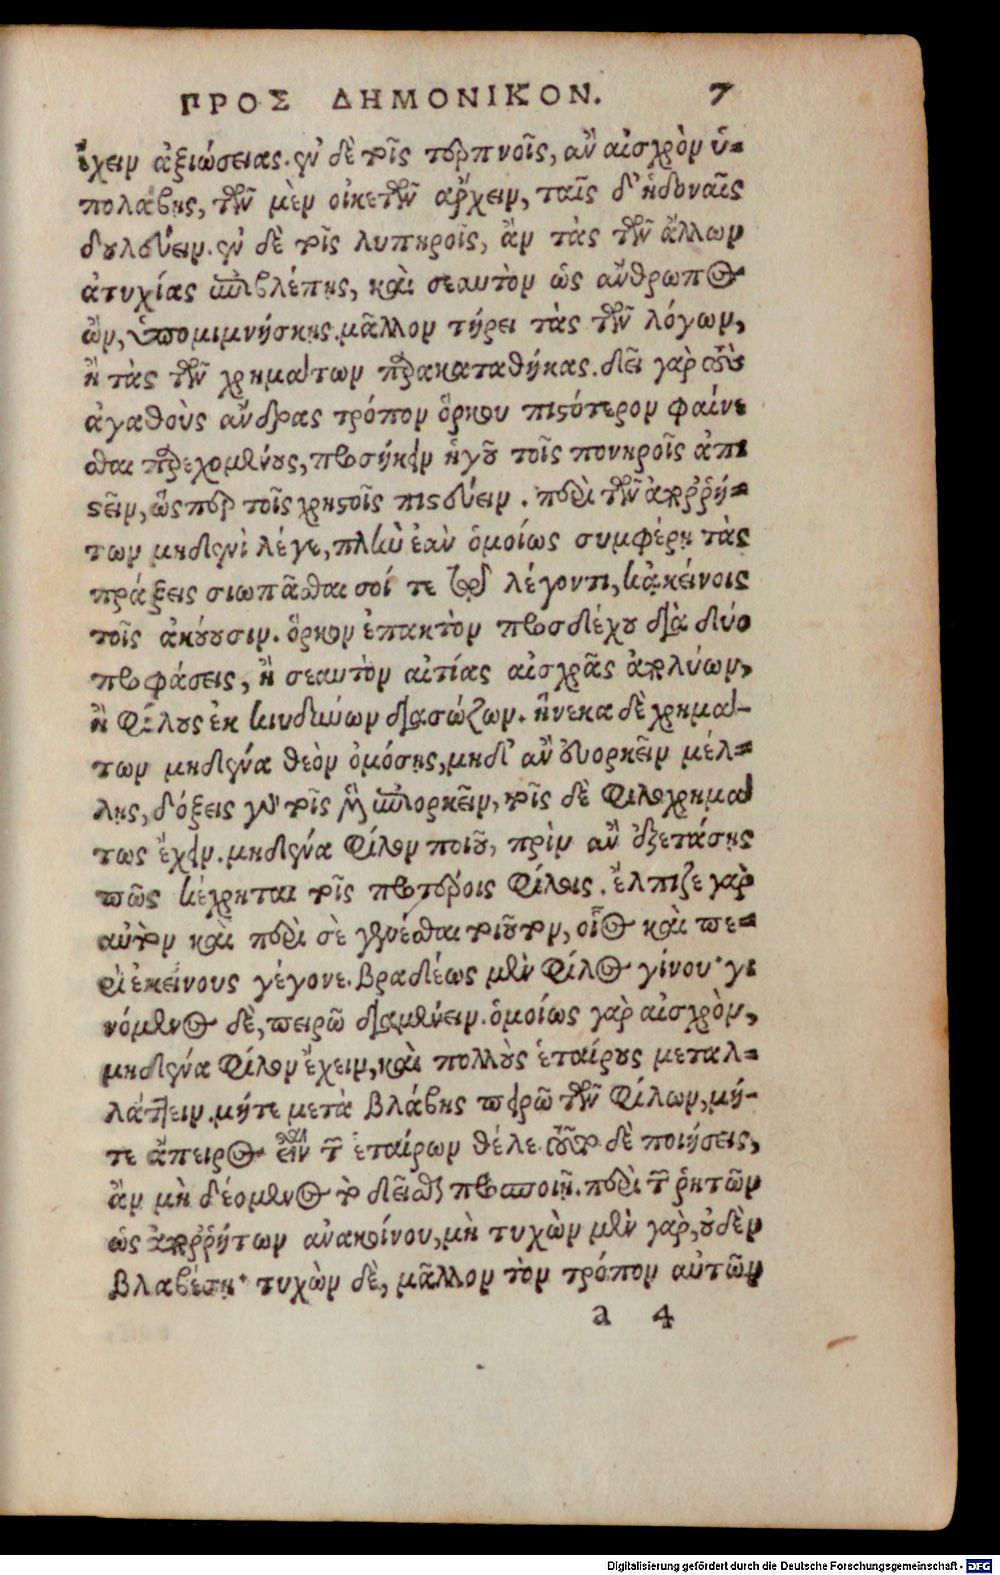 ΠΡΟΣ ΔΗΜΟΝΙΚΟΝ. 7
ἔχειν ἀξιώσειας. ἐν δὲ τοῖς τερπνοῖς, ἂν αἰσχρὸν ὑ-
πολάβῃς, τῶν μὲν οἰκετῶν ἄρχειν, ταῖς δ' ἡδοναῖς
δουλεύειν. ἐν δὲ τοῖς λυπηροῖς, ἂν τὰς τῶν ἄλλων
ἀτυχίας ἐπιβλέπῃς, καὶ σεαυτὸν ὡς ἄνθρωπος
ὢν, ὑπομιμνήσκῃς. μᾶλλον τήρει τὰς τῶν λόγων,
ἢ τὰς τῶν χρημάτων παρακαταθήκας. δεῖ γὰρ τοὺς
ἀγαθοὺς ἄνδρας τρόπον ὅρκου πιστότερον φαίνε
σθαι παρεχομένους, προσήκειν ἡγοῦ τοῖς πονηροῖς ἀπι
στεῖν, ὥσπερ τοῖς χρηστοῖς πιστεύειν. περὶ τῶν ἀπορρή-
των μηδενὶ λέγε, πλὴν ἐὰν ὁμοίως συμφέρῃ τὰς
πράξεις σιωπᾶσθαι σοί τε τῷ λέγοντι, κἀκείνοις
τοῖς ἀκούουσιν. ὅρκον ἐπακτὸν προσδέχου διὰ δύο
προφάσεις, ἢ σεαυτὸν αἰτίας αἰσχρᾶς ἀπολύων,
ἢ φίλους ἐκ κινδύνων διασώζων. ἕνεκα δὲ χρημά-
των μηδένα θεὸν ὀμόσῃς, μηδ' ἂν εὐορκεῖν μέλ-
λῃς, δόξεις γὰρ τοῖς μὲν ἐπιορκεῖν, τοῖς δὲ φιλοχρημά
τως ἔχειν. μηδένα φίλον ποιοῦ, πρὶν ἂν ἐξετάσῃς
πῶς κέχρηται τοῖς προτέροις φίλοις. ἔλπιζε γὰρ
αὐτὸν καὶ περὶ σὲ γενέσθαι τοιοῦτον, οἷος καὶ πε-
ρὶ ἐκείνους γέγονε. βραδέως μὲν φίλος γίνου· γε
νόμενος δὲ, πειρῶ διαμένειν. ὁμοίως γὰρ αἰσχρὸν,
μηδένα φίλον ἔχειν, καὶ πολλοὺς ἑταίρους μεταλ-
λάττειν. μήτε μετὰ βλάβης πειρῶ τῶν φίλων, μή-
τε ἄπειρος εἶναι τῶν ἑταίρων θέλε. τοῦτο δὲ ποιήσεις,
ἂν μὴ δεόμενος τὸ δεῖσθαι προσποιῇ. περὶ τῶν ῥητῶν
ὡς ἀπορρήτων ἀνακοίνου, μὴ τυχὼν μὲν γὰρ, οὐδὲν
βλαβήσῃ· τυχὼν δὲ, μᾶλλον τὸν τρόπον αὐτῶν
a 4
Digitalisierung gefördert durch die Deutsche Forschungsgemeinschaft - DFG